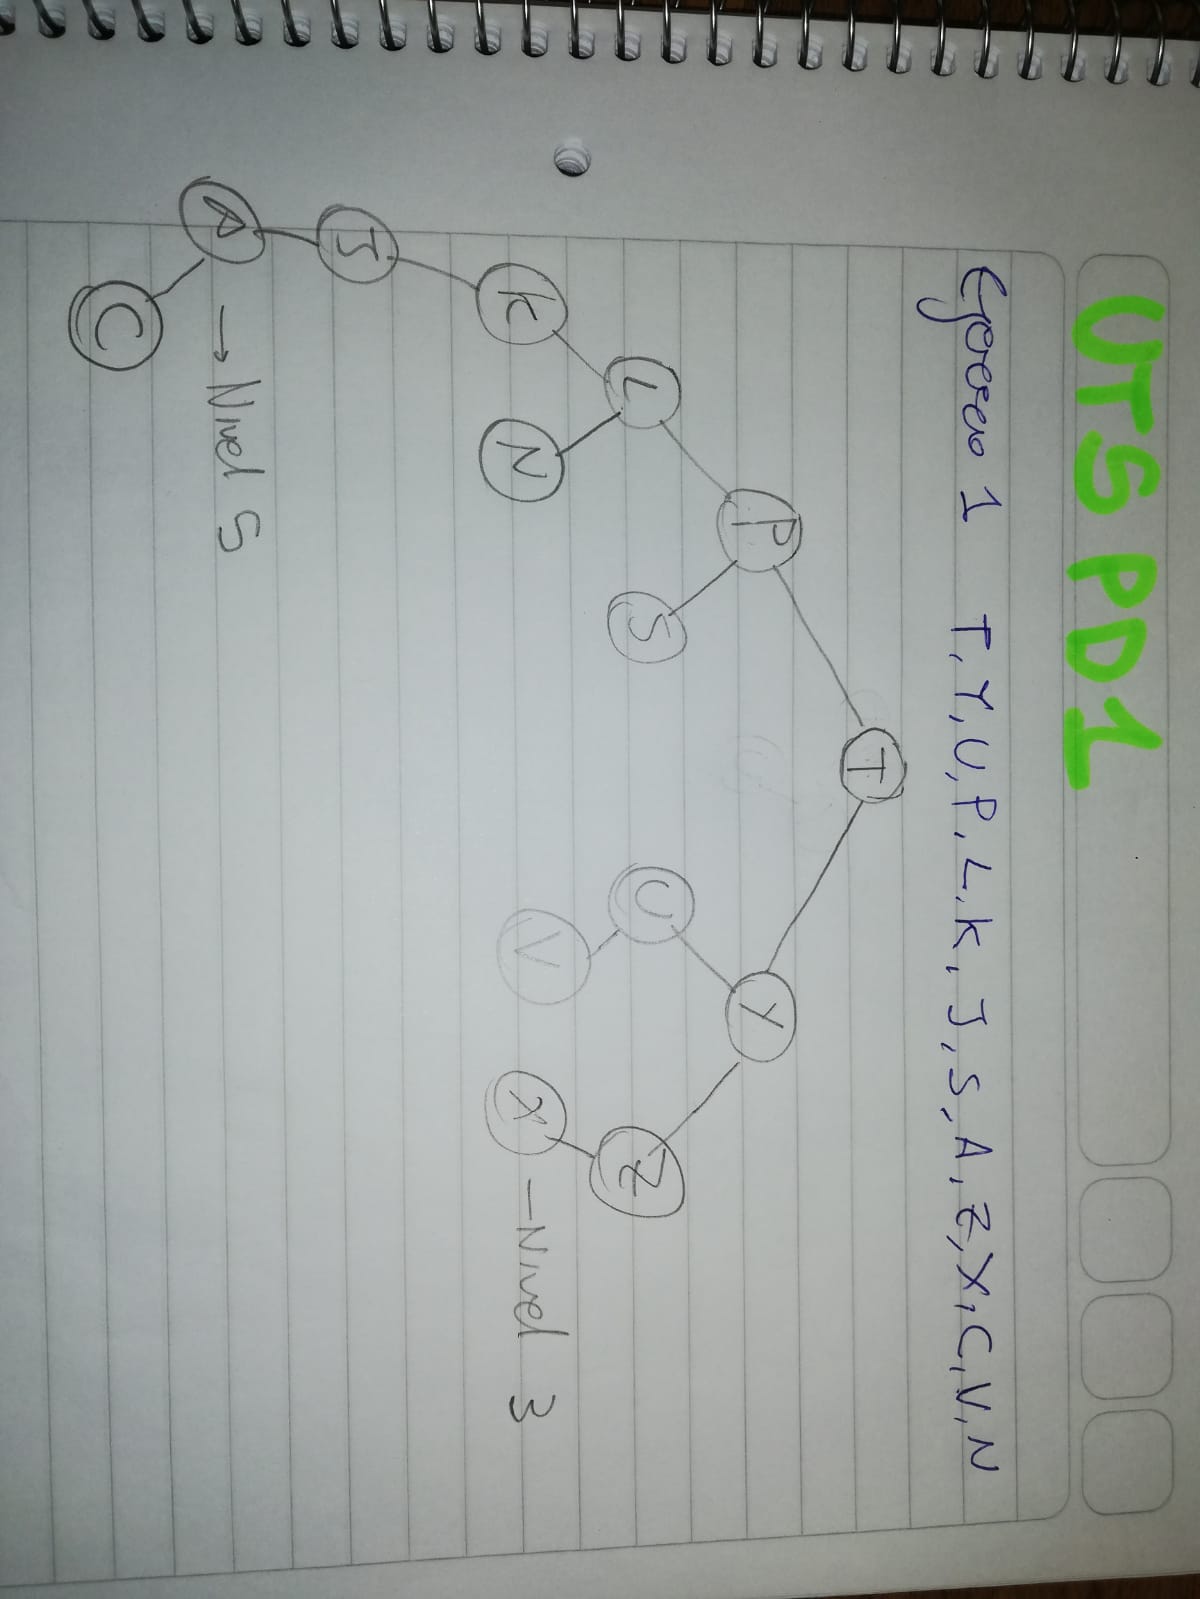 UT5 PD1
Ejercicio 1 T, Y, U, P, L, K, J, S, A, Z, X, C, V, N
T
P Y
L S U Z
K N V X - Nivel 3
J
A → Nivel 5
C